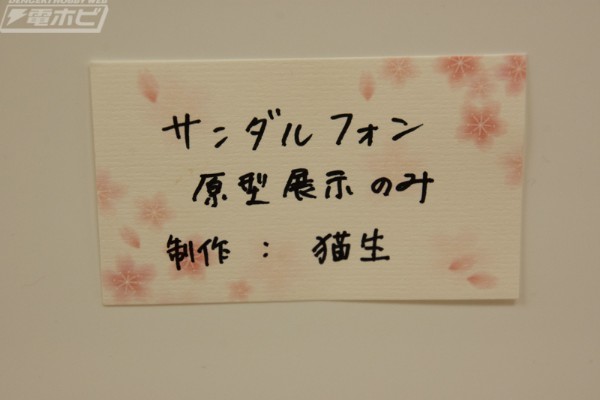 DENGEKI HOBBY WEB
電ホビ
サンダルフォン
原型展示のみ
制作： 猫生